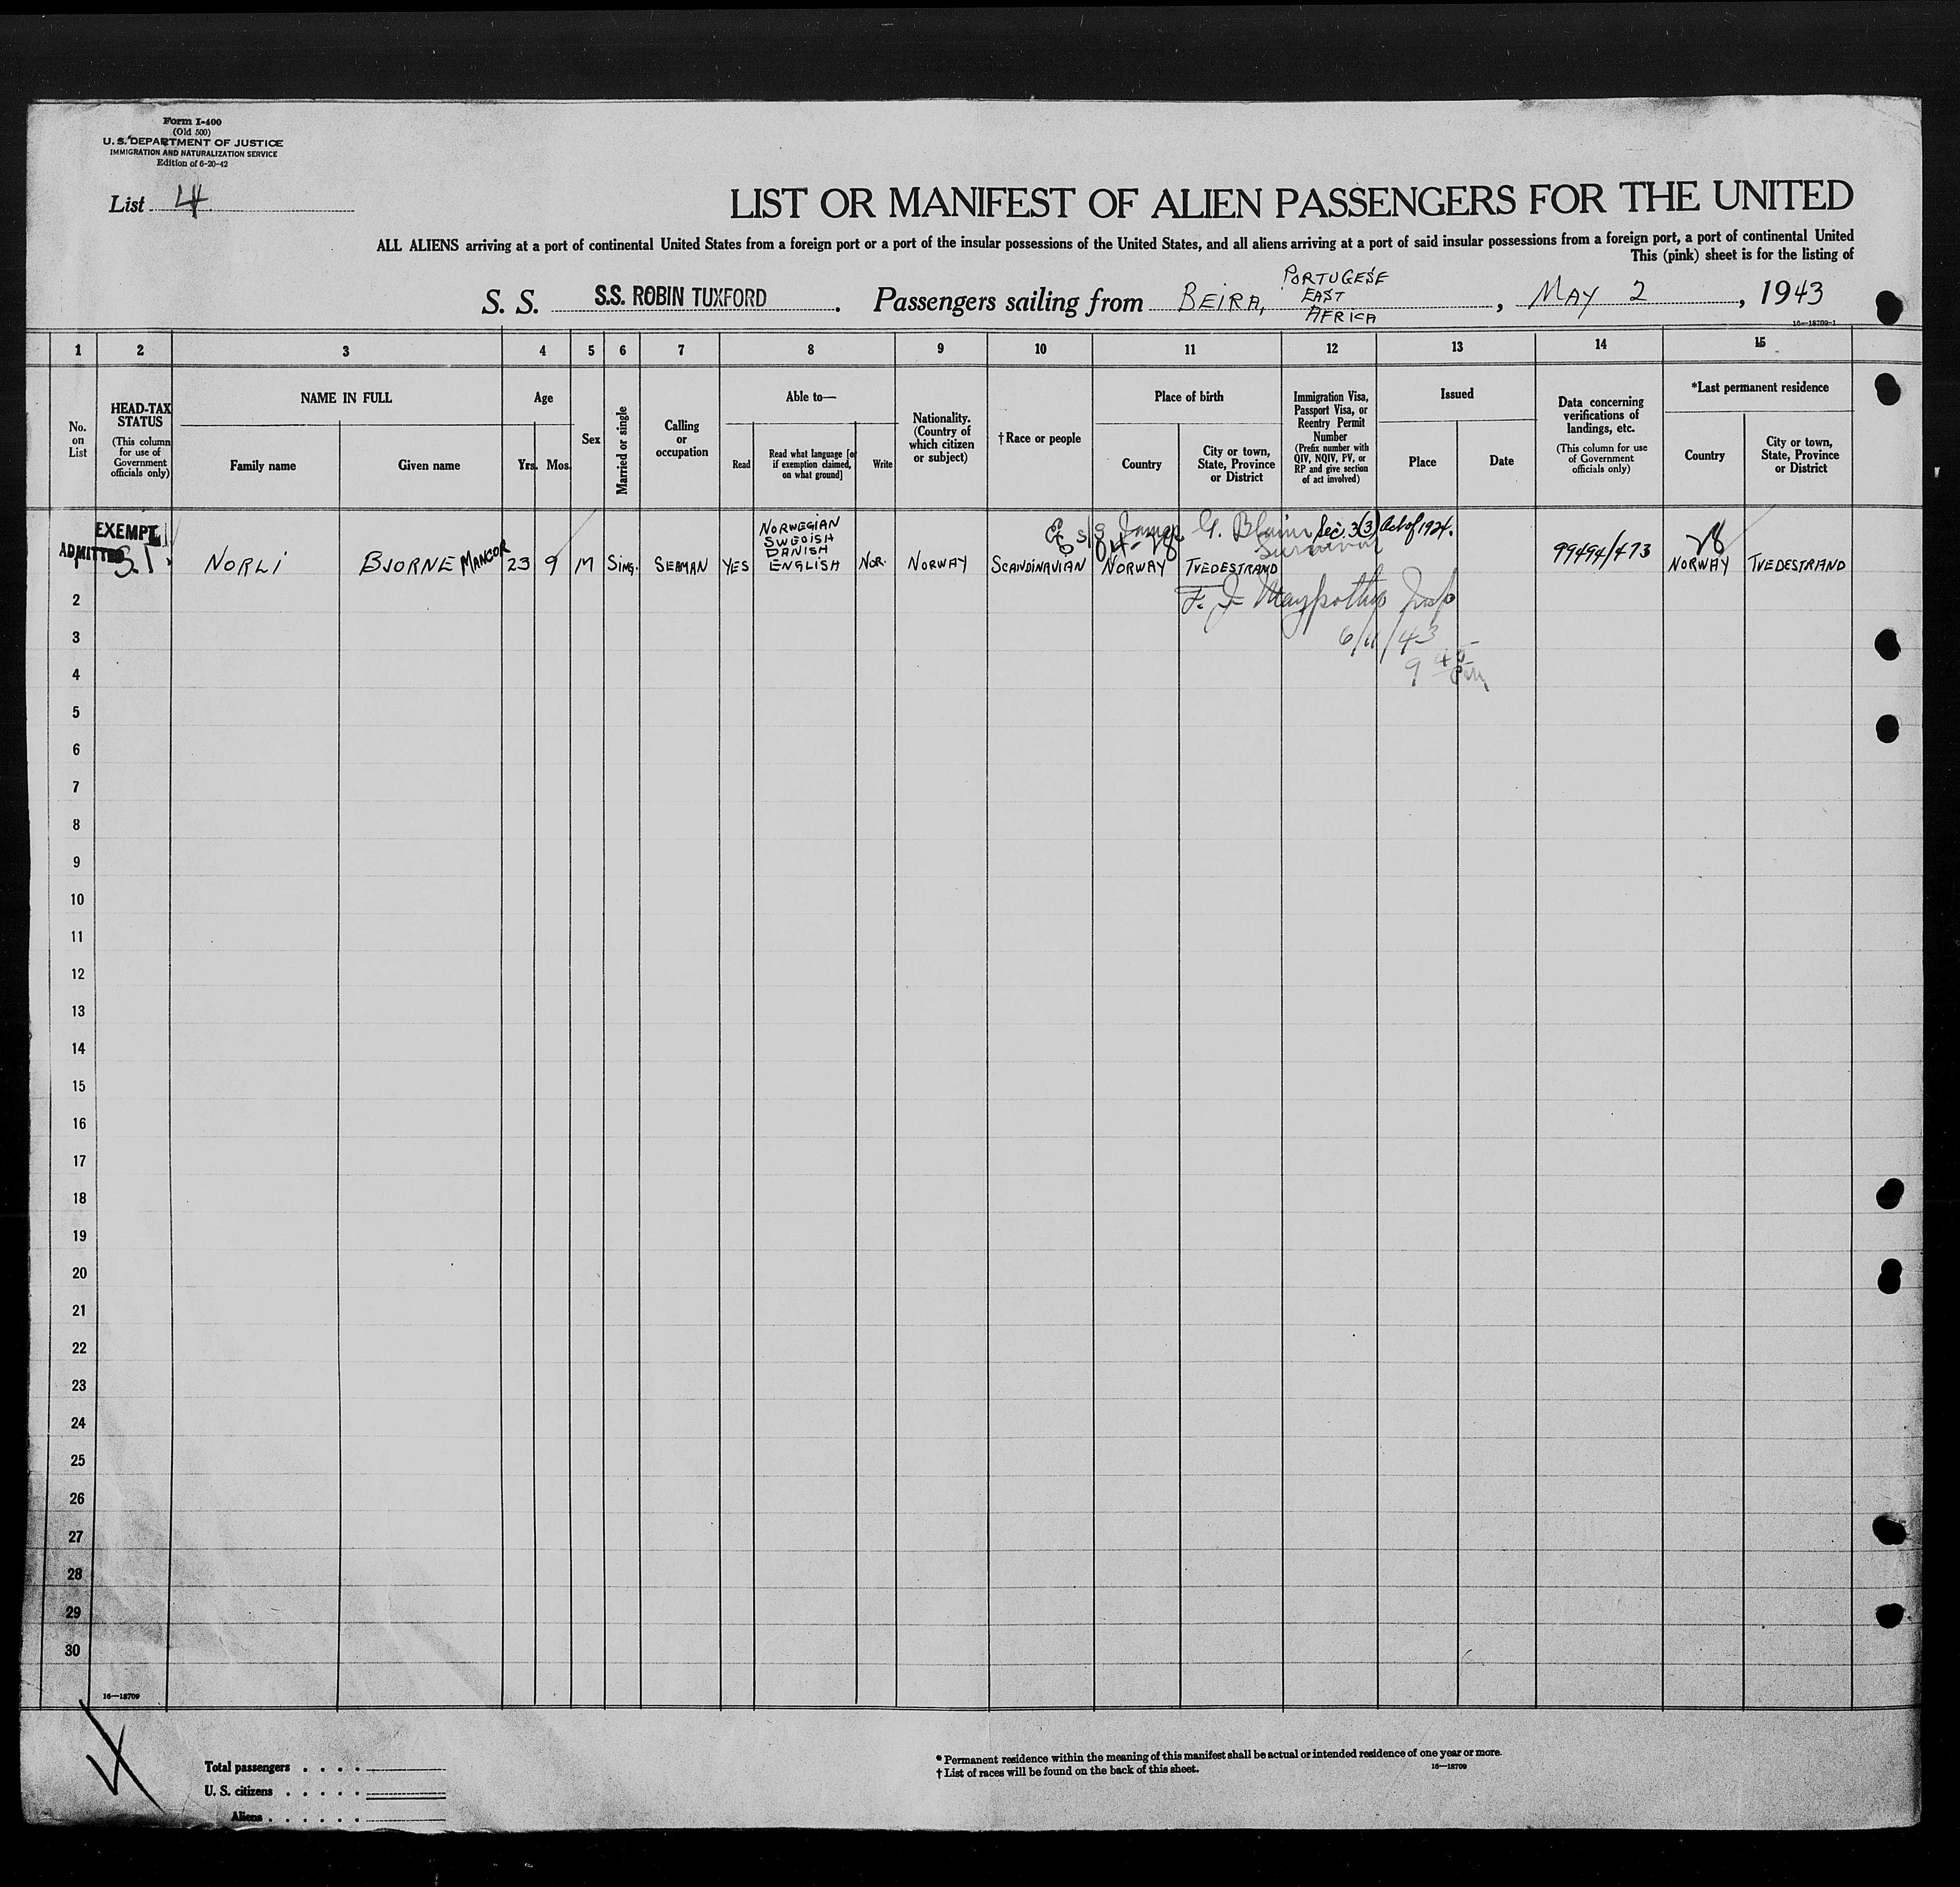 Form I-400
(Old 500)
U. S. DEPARTMENT OF JUSTICE
IMMIGRATION AND NATURALIZATION SERVICE
Edition of 6-20-42
List 4
LIST OR MANIFEST OF ALIEN PASSENGERS FOR THE UNITED
ALL ALIENS arriving at a port of continental United States from a foreign port or a port of the insular possessions of the United States, and all aliens arriving at a port of said insular possessions from a foreign port, a port of continental United
This (pink) sheet is for the listing of
S. S. S.S. ROBIN TUXFORD. Passengers sailing from BEIRA, PORTUGESE EAST AFRICA, MAY 2, 1943
16—18709-1
1 2 3 4 5 6 7 8 9 10 11 12 13 14 15
No. on List
HEAD-TAX STATUS
(This column for use of Government officials only)
NAME IN FULL
Family name
Given name
Age
Yrs. Mos.
Sex
Married or single
Calling or occupation
Able to—
Read
Read what language [or if exemption claimed, on what ground]
Write
Nationality. (Country of which citizen or subject)
†Race or people
Place of birth
Country
City or town, State, Province or District
Immigration Visa, Passport Visa, or Reentry Permit Number
(Prefix number with QIV, NQIV, PV, or RP and give section of act involved)
Issued
Place
Date
Data concerning verifications of landings, etc.
(This column for use of Government officials only)
*Last permanent residence
Country
City or town, State, Province or District
EXEMPT
ADMITTED S.I.
NORLI BJORNE MANGOR 23 9 M SING. SEAMAN YES NORWEGIAN SWEDISH DANISH ENGLISH NOR. NORWAY SCANDINAVIAN NORWAY TVEDESTRAND 99494/473 NORWAY TVEDESTRAND
S/S James G. Blaine Sec. 3(3) Act of 1924.
Survivor
6/11/43
9 45 PM
2
3
4
5
6
7
8
9
10
11
12
13
14
15
16
17
18
19
20
21
22
23
24
25
26
27
28
29
30
16—18709
4
Total passengers . . . .
U. S. citizens . . . . .
Aliens . . . . . .
* Permanent residence within the meaning of this manifest shall be actual or intended residence of one year or more.
† List of races will be found on the back of this sheet.
16—18709